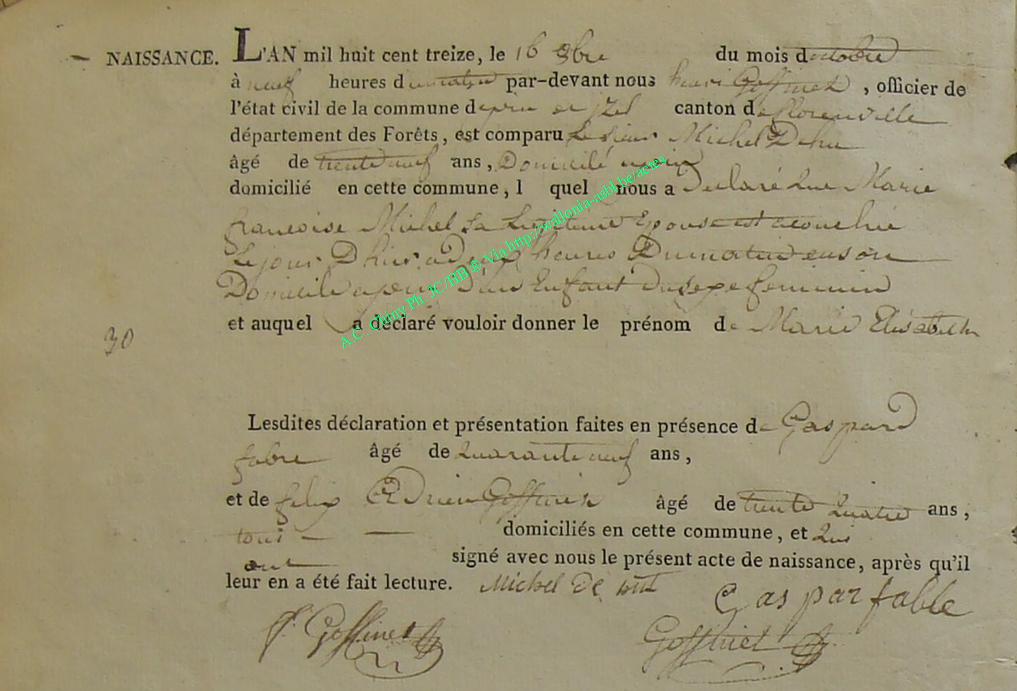 NAISSANCE. L'AN mil huit cent treize, le 16 8bre du mois doctobre
à neuf heures dumatin par-devant nous henri Goffinet, officier de
l'état civil de la commune de et jzel canton de florenville
département des Forêts, est comparu Le sieur Michel
âgé de trente neuf ans, Domicilé
domicilié en cette commune, l quel nous a Declaré que Marie
francoise Michel sa Legitime Epouse est acouchée
Le jour D'hier a heures Dumatin en son
Domicile Enfant Du sexe feminin
et auquel a déclaré vouloir donner le prénom de Marie Elisabeth
30
Lesdites déclaration et présentation faites en présence de Gaspard
fabre âgé de quarante neuf ans,
et de felix Adrien Goffinet âgé de trente quatre ans,
tous domiciliés en cette commune, et qui
ont signé avec nous le présent acte de naissance, après qu'il
leur en a été fait lecture. Michel De Gaspar fable
f. Goffinet Goffinet
A.C. Chiny Ph. JC/BB © Via http://wallonia-asbl.be/actes